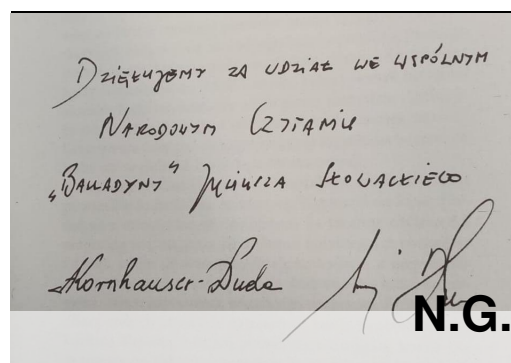 Dziękujemy za udział we wspólnym
Narodowym Czytaniu
„Balladyny” Juliusza Słowackiego
AKornhauser-Duda
N.G.